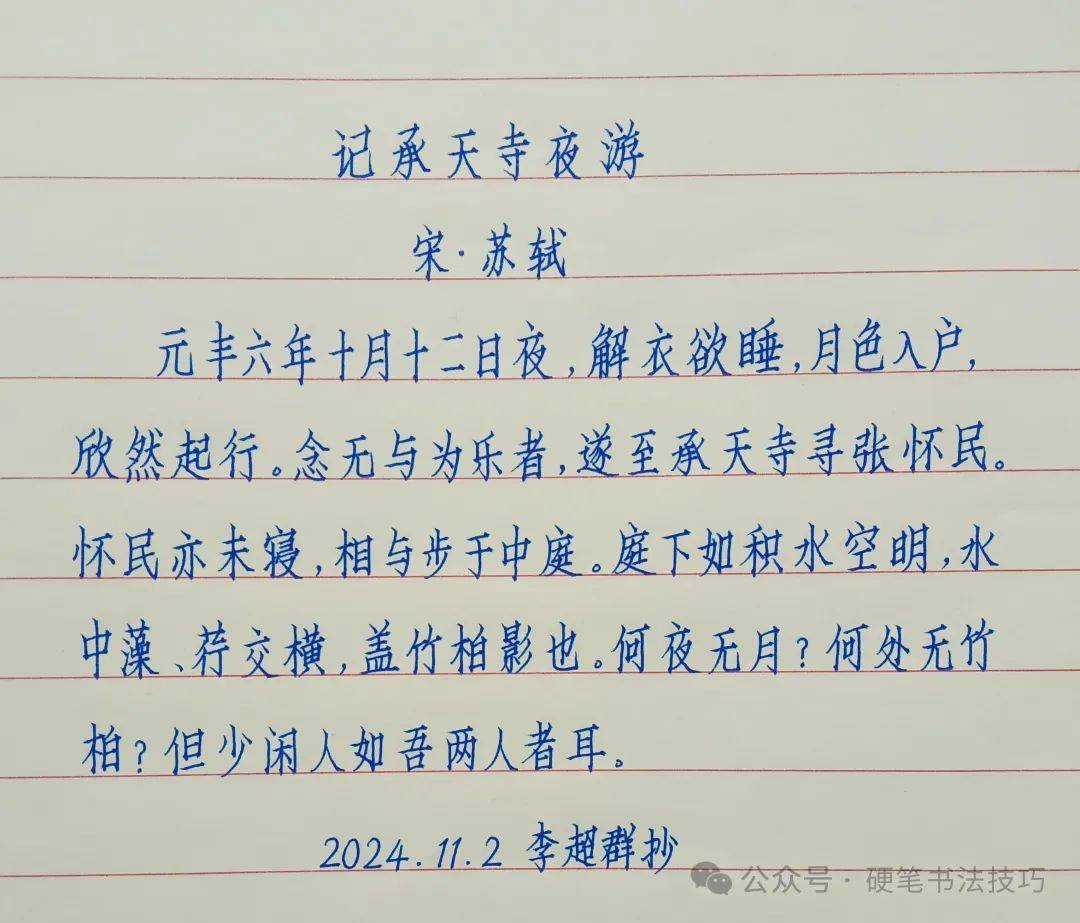 记承天寺夜游
宋·苏轼
元丰六年十月十二日夜,解衣欲睡,月色入户,
欣然起行。念无与为乐者,遂至承天寺寻张怀民。
怀民亦未寝,相与步于中庭。庭下如积水空明,水
中藻、荇交横,盖竹柏影也。何夜无月?何处无竹
柏?但少闲人如吾两人者耳。
2024.11.2 李超群抄
公众号·硬笔书法技巧